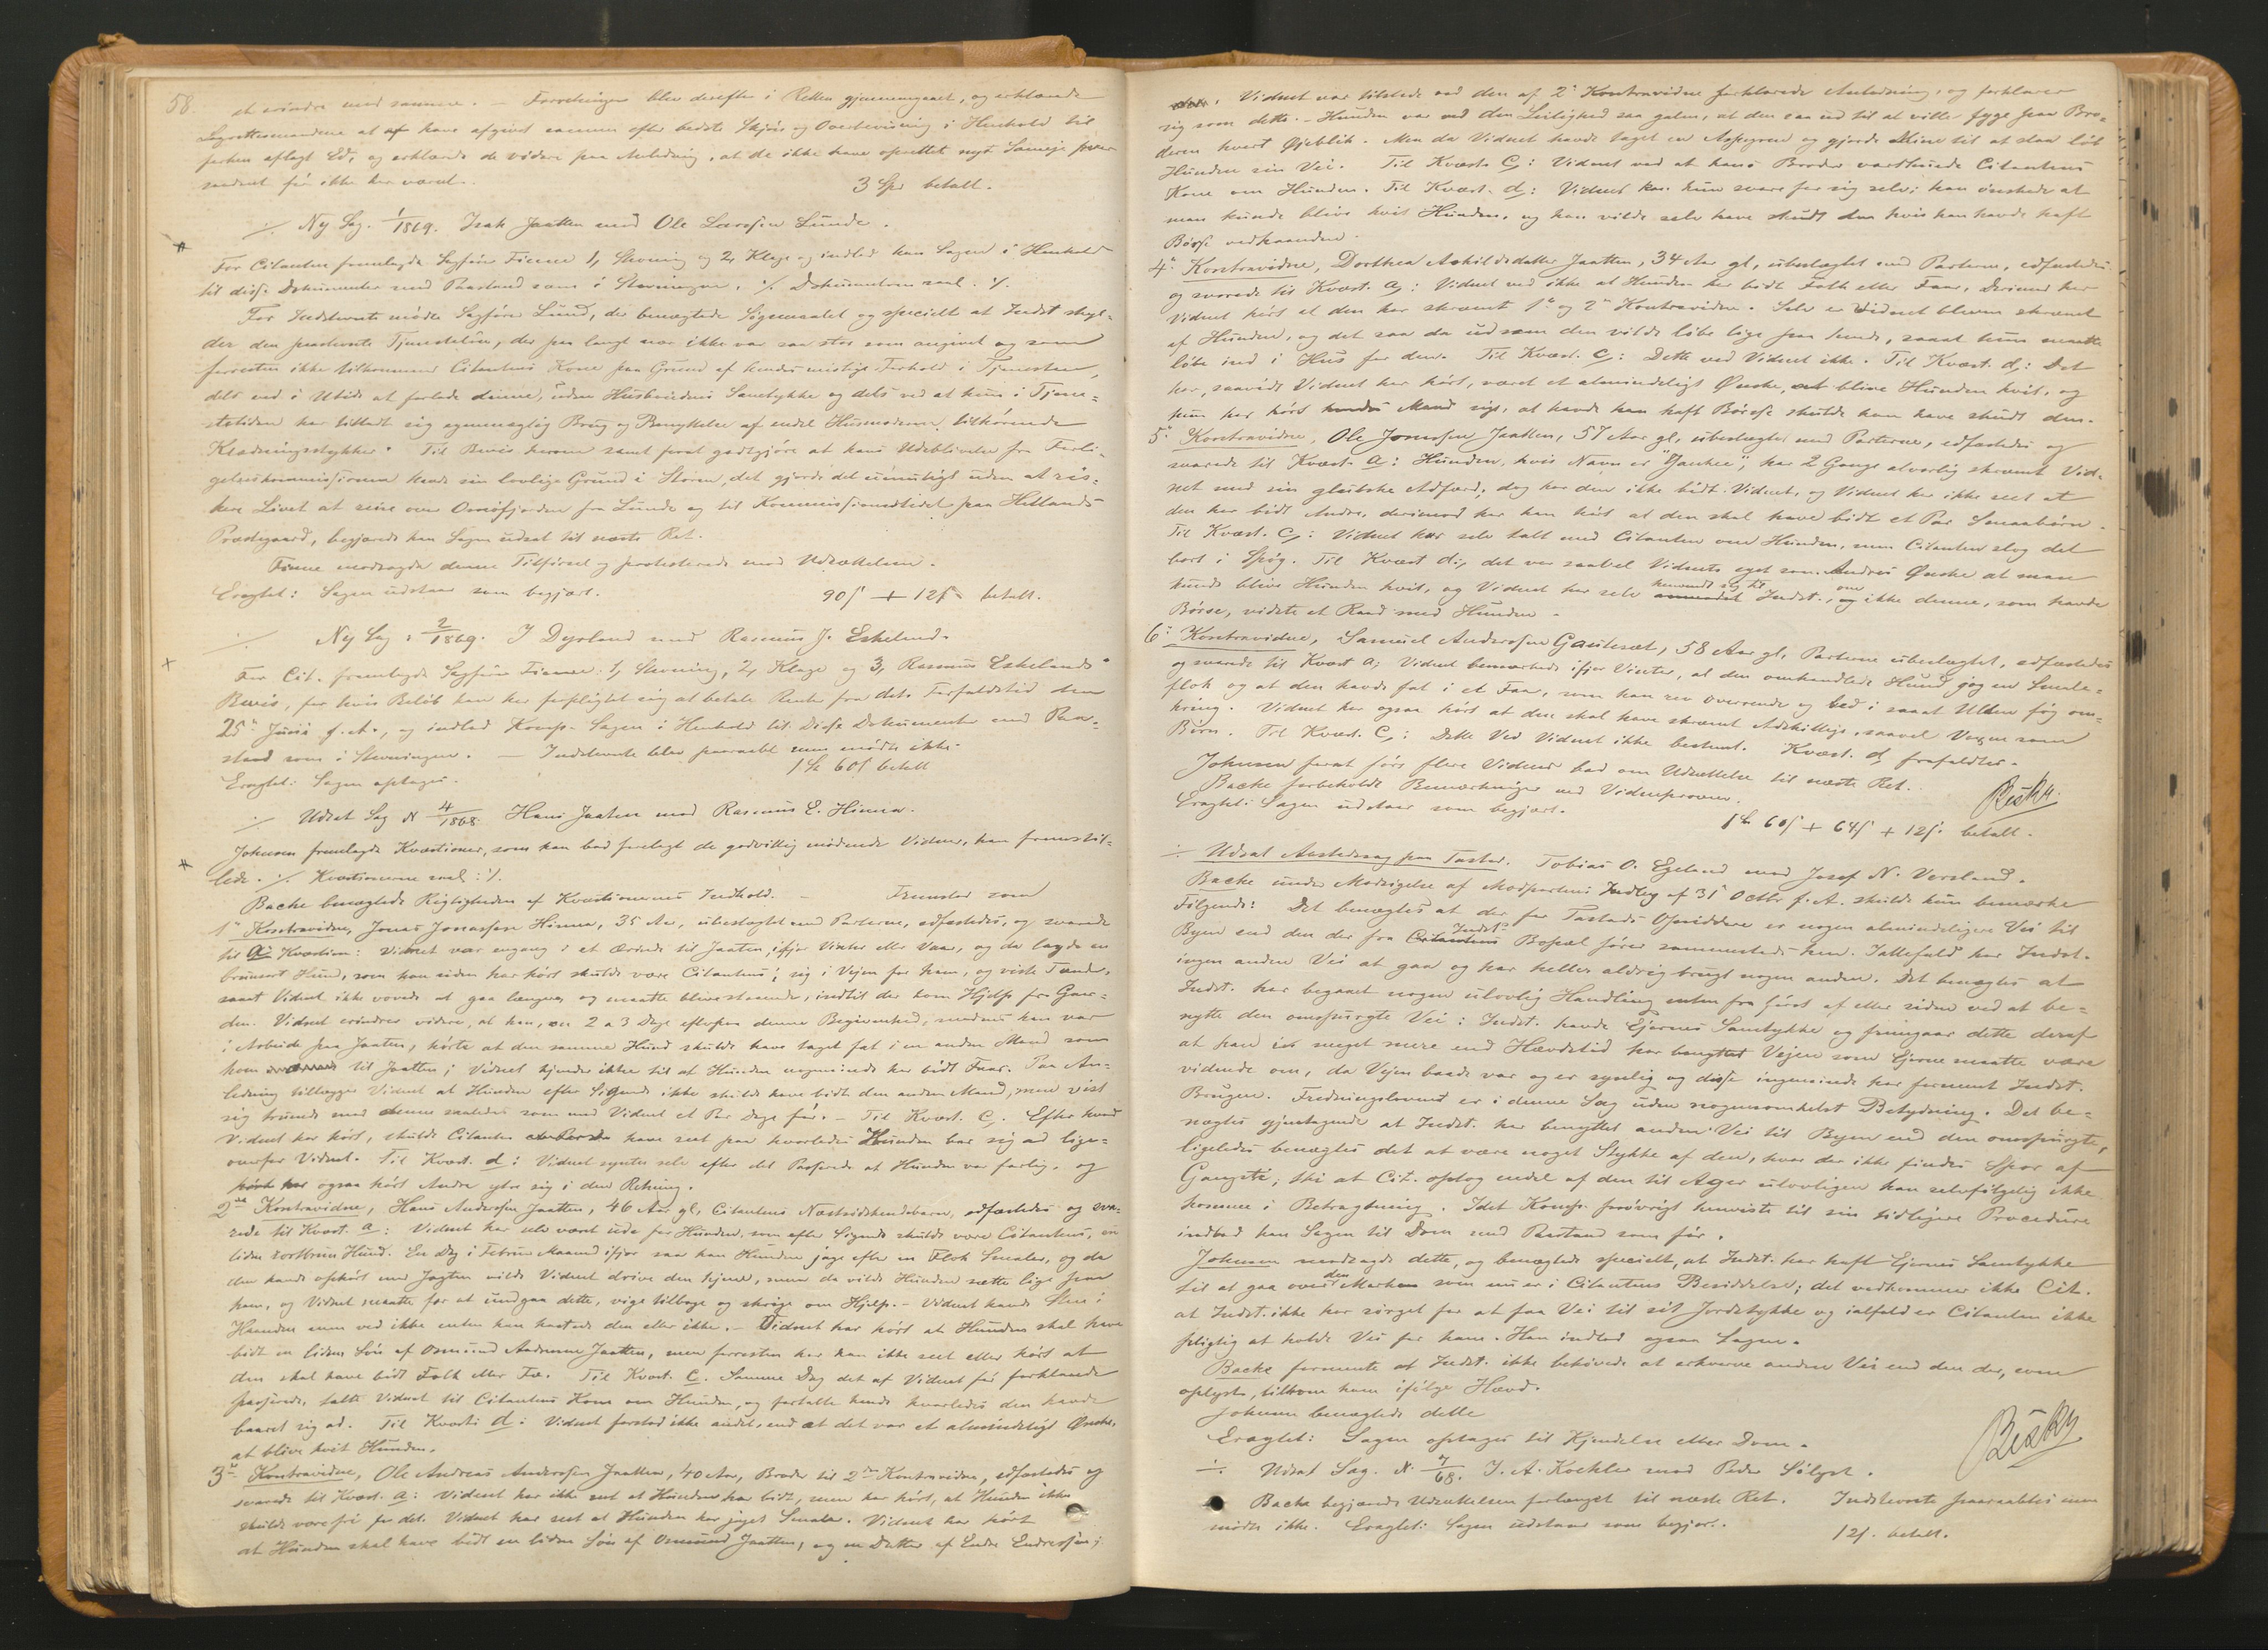 58.
at erindre mod samme. — Forretningen blev derefter i Retten gjennemgaaet, og erklærede
Lagrettesmændene at have afgivet samme efter bedste Skjøn og Overbevisning i Henhold til
forhen aflagt Ed, og erklærede de videre paa Anledning, at de ikke have oprettet nyt Sameje hvor
saadant før ikke har været.
3 Spd betalt.
Ny Sag. 1/1869. Isak Jaatten mod Ole Larssen Lunde.
For Citanten fremlagde Sagfører Finne 1, Stevning og 2, Klage og indlod han Sagen i Henhold
til disse Dokumenter med Paastand som i Stevningen. ./. Dokumenterne saal. ./.
For Indstevnte mødte Sagfører Lund, der benægtede Søgsmaalet og specielt at Indst skyl-
der den paastevnte Tjenesteløn, der paa langt nær ikke var saa stor som angivet og som
forresten ikke tilkommer Citantens Kone paa Grund af hendes mislige Forhold i Tjenesten,
dels ved i Utide at forlade denne, uden Husbondens Samtykke og dels ved at hun i Tjene-
stetiden har tilladt sig egenmægtig Brug og Benyttelse af endel Husmoderen tilhørende
Klædningsstykker. Til Bevis herom samt forat godtgjøre at hans Udeblivelse fra Forli-
gelseskommissionen havde sin lovlige Grund i Storm, det gjorde det umuligt uden at ris-
kere Livet at reise over Orrefjorden fra Lunde og til Kommissionsstedet paa Hetlands
Præstegaard, begjærede han Sagen udsat til næste Ret.
Finne modsagde denne Tilførsel og protesterede mod Udsættelsen.
Eragtet: Sagen udstaar som begjært.
90ſ + 12ſ betalt.
Ny Sag: 2/1869. I Dysland mod Rasmus J. Eskeland.
For Cit. fremlagde Sagfører Finne: 1, Stevning, 2, Klage og 3, Rasmus Eskelands
Bevis, for hvis Beløb han har forpligtet sig at betale Renter fra dets Forfaldstid den
25de Juni f. A., og indlod Komp. Sagen i Henhold til Disse Dokumenter med Paa-
stand som i Stevningen. — Indstevnte blev paaraabt men mødte ikke.
1 Sp 60ſ betalt
Eragtet: Sagen optages.
Udsat Sag N 4/1868. Hans Jaatten mod Rasmus E. Hinna.
Johnsen fremlagde Kvæstioner, som han bad forelagt de godvillig mødende Vidner, han fremstil-
lede. ./. Kvæstionerne saal: ./.
Backe benægtede Rigtigheden af Kvæstionernes Indhold. — Fremstod som
1ste Kontravidne, Jonas Jonassen Hinna, 35 Aar, ubeslægtet med Parterne, edfæstedes, og svarede
til a Kvæstion: Vidnet var engang i et Ærinde til Jaatten, ifjor Vinter eller Vaar, og da lagde en
brunsort Hund, som han siden har hørt skulde være Citantens, sig i Vejen for ham, og viste Tænder,
saaat Vidnet ikke vovede at gaa længer, og maatte blive staaende, indtil der kom Hjelp fra Gaar-
den. Vidnet erindrer videre, at han, en 2 a 3 Dage efterpaa denne Begivenhed, medens han var
i Arbeide paa Jaatten, hørte at den samme Hund skulde have taget fat i en anden Mand som
kom til Jaatten; Vidnet kjender ikke til at Hunden nogensinde har bidt Faar. Paa An-
ledning tillægger Vidnet at Hunden efter Sigende ikke skulde have bidt den anden Mand, men vist
sig truende mod denne saaledes som mod Vidnet et Par Dage før. — Til Kvæst. C. Efter hvad
Vidnet har hørt, skulde Citanten have seet paa hvorledes Hunden bar sig ad lige-
overfor Vidnet. Til Kvæst. d: Vidnet syntes selv efter det Passerede at Hunden var farlig, og
har ogsaa hørt Andre ytre sig i den Retning.
2det Kontravidne, Hans Andersen Jaatten, 46 Aar gl, Citantens Næstsødskendebarn, edfæstedes og sva-
rede til Kvæst. a: Vidnet har selv været ude for Hunden, som efter Sigende skulde være Citantens, en
liden sortbrun Hund. En Dag i Februar Maaned ifjor saa han Hunden jage efter en Flok Smaler, og da
den havde ophørt med Jagten vilde Vidnet drive den hjem, men da vilde Hunden sætte lige paa
ham, og Vidnet maatte for at undgaa dette, vige tilbage og skrige om Hjelp. — Vidnet havde Sten i
Haanden men ved ikke enten han kastede den eller ikke. — Vidnet har hørt at Hunden skal have
bidt en liden Søn af Osmund Jaatten, men forresten har han ikke seet eller hørt at
den skal have bidt Folk eller Fæ. Til Kvæst. C. Samme Dag det af Vidnet før forklarede
passerede, talte Vidnet til Citantens Kone om Hunden, og fortalte hende hvorledes den havde
baaret sig ad. Til Kvæst: d: Vidnet forstod ikke andet, end at det var et almindeligt Ønske,
at blive kvit Hunden.
3de Kontravidne, Ole Andreas Andersen Jaatten, 40 Aar, Broder til 2det Kontravidne, edfæstedes og
svarede til Kvæst. a: Vidnet har ikke seet at Hunden har bidt, men har hørt, at Hunden ikke
skulde være fri for det. Vidnet har seet at Hunden har jaget Smaler. Vidnet har hørt
at Hunden skal have bidt en liden Søn af Osmund Jaatten, og en Datter af Endre Endressen;
Vidnet var tilstede ved den af 2det Kontravidne forklarede Anledning, og forklarer
sig som dette. — Hunden var ved den Leilighed saa galen, at den saa ud til at ville fyge paa Bro-
deren hvert Øjeblik. Men da Vidnet havde taget en og gjorde Mine til at slaa løb
Hunden sin Vei. Til Kvæst. C,: Vidnet ved at hans Broder varskuede Citantens
Kone om Hunden. Til Kvæst. d,: Vidnet kan kun svare for sig selv; han ønskede at
man kunde blive kvit Hunden, og han vilde selv have skudt den hvis han havde haft
Børse vedhaanden.
4de Kontravidne, Dorthea Askildsdatter Jaatten, 34 Aar gl, ubeslægtet med Parterne, edfæstedes
og svarede til Kvæst. a,: Vidnet ved ikke at Hunden har bidt Folk eller Faar, derimod har
Vidnet hørt at den har skræmt 1ste og 2det Kontravidne. Selv er Vidnet bleven skræmt
af Hunden, og det saa da ud som den vilde løbe lige paa hende, saaat hun maatte
løbe ind i Hus for den. Til Kvæst. C,: Dette ved Vidnet ikke. Til Kvæst. d,: Det
har, saavidt Vidnet har hørt, været et almindeligt Ønske, at blive Hunden kvit, og
hun har hørt hendes Mand sige, at havde han haft Børse skulde han have skudt den.
5te Kontravidne, Ole Jonassen Jaatten, 57 Aar gl, ubeslægtet med Parterne, edfæstedes og
svarede til Kvæst. a: Hunden, hvis Navn er "Yankee", har 2 Gange alvorlig skræmt Vid-
net med sin glubske Adfærd; dog har den ikke bidt Vidnet, og Vidnet har ikke seet at
den har bidt Andre, derimod har han hørt at den skal have bidt et Par Smaabørn.
Til Kvæst. C,: Vidnet har selv talt med Citanten om Hunden, men Citanten slog det
bort i Spøg. Til Kvæst d:, det var saavel Vidnets eget som Andres Ønske at man
kunde blive Hunden kvit, og Vidnet har selv henvendt sig til Indst., om ikke denne, som havde
Børse, vidste et Raad med Hunden.
6te Kontravidne, Samuel Anderssen Gautesæt, 58 Aar gl, Parterne ubeslægtet, edfæstedes
og svarede til Kvæst a; Vidnet bemærkede ifjor Vinter, at den omhandlede Hund jog en Smale-
flok og at den havde fat i et Faar, som han rev overende og bed i saaat Ulden føg om-
kring. Vidnet har ogsaa hørt at den skal have skræmt Adskillige, saavel Voxne som
Børn. Til Kvæst. C,: Dette Ved Vidnet ikke bestemt. Kvæst. d, frafaldtes.
Johnsen forat føre flere Vidner bad om Udsættelse til næste Ret.
Backe forbeholdt Bemærkninger ved Vidneprovene.
Eragtet: Sagen udstaar som begjært.
1 Sp 60ſ + 64ſ + 12ſ. betalt.
Udsat Aastedssag paa Tasted. Tobias O. Egeland mod Josef N. Vorsland.
Backe under Modsigelse af Modpartens Indlæg af 31te Octbr f. A. skulde kun bemærke
Følgende: Det benægtes at der for Tastads Opsiddere er nogen almindeligere Vei til
Byen end den der fra Citantens Indst's Bopæl fører sammesteds hen. Ialfald har Indst.
ingen anden Vei at gaa og har heller aldrig brugt nogen anden. Det benægtes at
Indst. har begaaet nogen ulovlig Handling enten fra først af eller siden ved at be-
nytte den omspurgte Vei: Indst. havde Ejernes Samtykke og fremgaar dette deraf
at han i meget mere end Hævdstid har benyttet Vejen som Ejerne maatte være
vidende om, da Vejen baade var og er synlig og disse ingensinde har formeent Indst.
Brugen. Fredningsloven er i denne Sag uden nogensomhelst Betydning. Det be-
nægtes gjentagende at Indst. har benyttet anden Vei til Byen end den omspurgte,
ligeledes benægtes det at være noget Stykke af den, hvor der ikke findes Spor af
Gangsti; thi at Cit. oplog endel af den til Ager ulovligen kan selvfølgelig ikke
komme i Betragtning. Idet Komp. forøvrigt henviste til sin tidligere Procedure
indlod han Sagen til Dom med Paastand som før.
Johnsen modsagde dette, og benægtede specielt, at Indst. har haft Ejernes Samtykke
til at gaa over den Mark som nu er i Citantens Besiddelse; det vedkommer ikke Cit.
at Indst. ikke har sørget for at faa Vei til sit Jordstykke og ialfald er Citanten ikke
pligtig at holde Vei for ham. Han indlod ogsaa Sagen.
Backe formente at Indst. ikke behøvede at erhverve anden Vei end den der, som
oplyst, tilkom ham ifølge Hævd.
Johnsen benægtede dette
Eragtet: Sagen optages til Kjendelse eller Dom.
Udsat Sag. N. 7/68. I. A. Koehler mod Peder Sølyst.
Backe begjærede Udsættelsen forlænget til næste Ret. Indstevnte paaraabtes men
mødte ikke. Eragtet: Sagen udstaar som begjært.
12ſ. betalt.